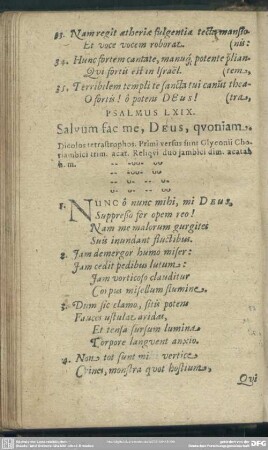 33. Nam regit ætheriæ fulgentia tecta
Et voce vocem roborat.
34. Hunc fortem cantate, manuq; potente
Qui fortis est in Israël.
35. Terribilem templi te sancta tui canūt
O fortis! ô potens DEus!
PSALMUS LXIX.
Salvum fac me, DEUS, qvoniam.
Dicolos tetrastrophos. Primi versus sunt Glyconii Cho-
riambici trim. acat. Reliqvi duo jambici dim. acatal.
1. NUNC ô nunc mihi, mi DEUS,
Suppresso fer opem reo!
Nam me malorum gurgites
Suis inundant fluctibus.
2. Jam demergor humo miser:
Jam cedit pedibus lutum:
Jam vorticoso clauditur
Corpus misellum flumine.
3. Dum sic clamo, sitis potens
Fauces ustulat aridas,
Et tensa sursum lumina
Torpore langvent anxio.
4. Non tot sunt mihi vertice
Crines, monstra quot hostium
Qvi